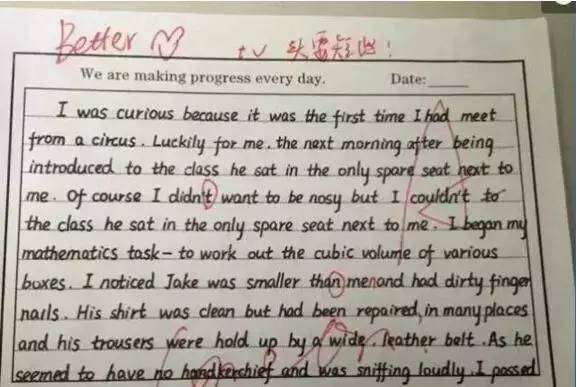 Better
t v 头要短些!
We are making progress every day. Date:
I was curious because it was the first time I had meet
from a circus. Luckily for me. the next morning after being
introduced to the class he sat in the only spare seat next to
me. Of course I didn't want to be nosy but I couldn't to
the class he sat in the only spare seat next to me. I began my
mathematics task - to work out the cubic volume of various
boxes. I noticed Jake was smaller than menand had dirty finger
nails. His shirt was clean but had been repaired, in many places
and his trousers were hold up by a wide, leather belt. As he
seemed to have no handkerchief and was sniffing loudly. I passed